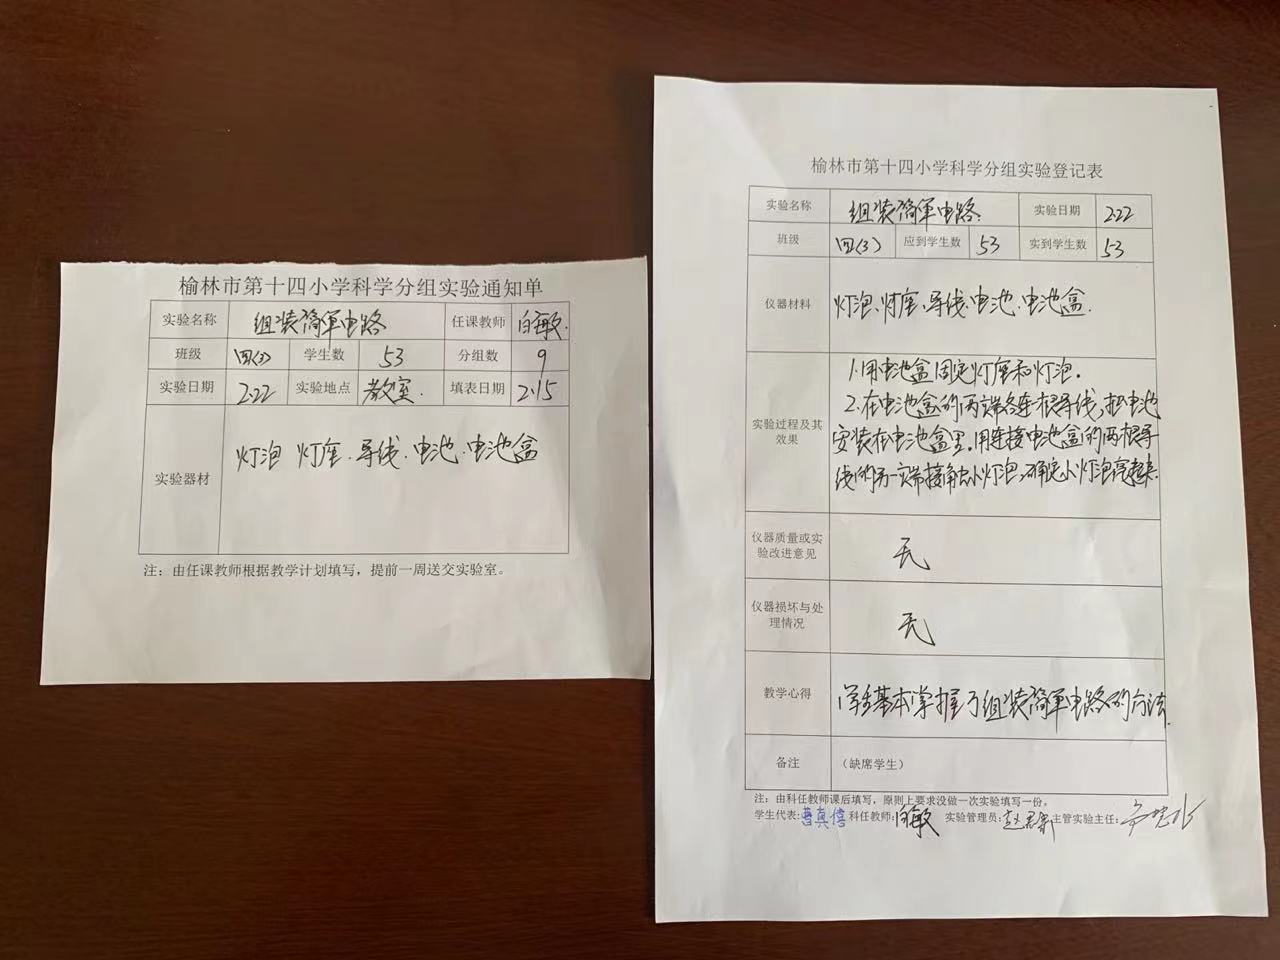 榆林市第十四小学科学分组实验通知单
实验名称 组装简单电路 任课教师 白敏
班级 四(3) 学生数 53 分组数 9
实验日期 2.22 实验地点 教室. 填表日期 2.15
实验器材 灯泡 灯座.导线.电池.电池盒
注：由任课教师根据教学计划填写，提前一周送交实验室。
榆林市第十四小学科学分组实验登记表
实验名称 组装简单电路. 实验日期 2.22
班级 四(3) 应到学生数 53 实到学生数 53
仪器材料 灯泡、灯座、导线.电池、电池盒.
实验过程及其
效果
1.用电池盒固定灯座和灯泡.
2.在电池盒的两端各连根导线,把电池
安装在电池盒里.用连接电池盒的两根导
线的另一端接触小灯泡,确定小灯泡亮起来.
仪器质量或实
验改进意见
无
仪器损坏与处
理情况
无
教学心得 学生基本掌握了组装简单电路的方法.
备注 （缺席学生）
注：由科任教师课后填写，原则上要求没做一次实验填写一份。
学生代表: 曹真僖 科任教师: 白敏 实验管理员: 主管实验主任: